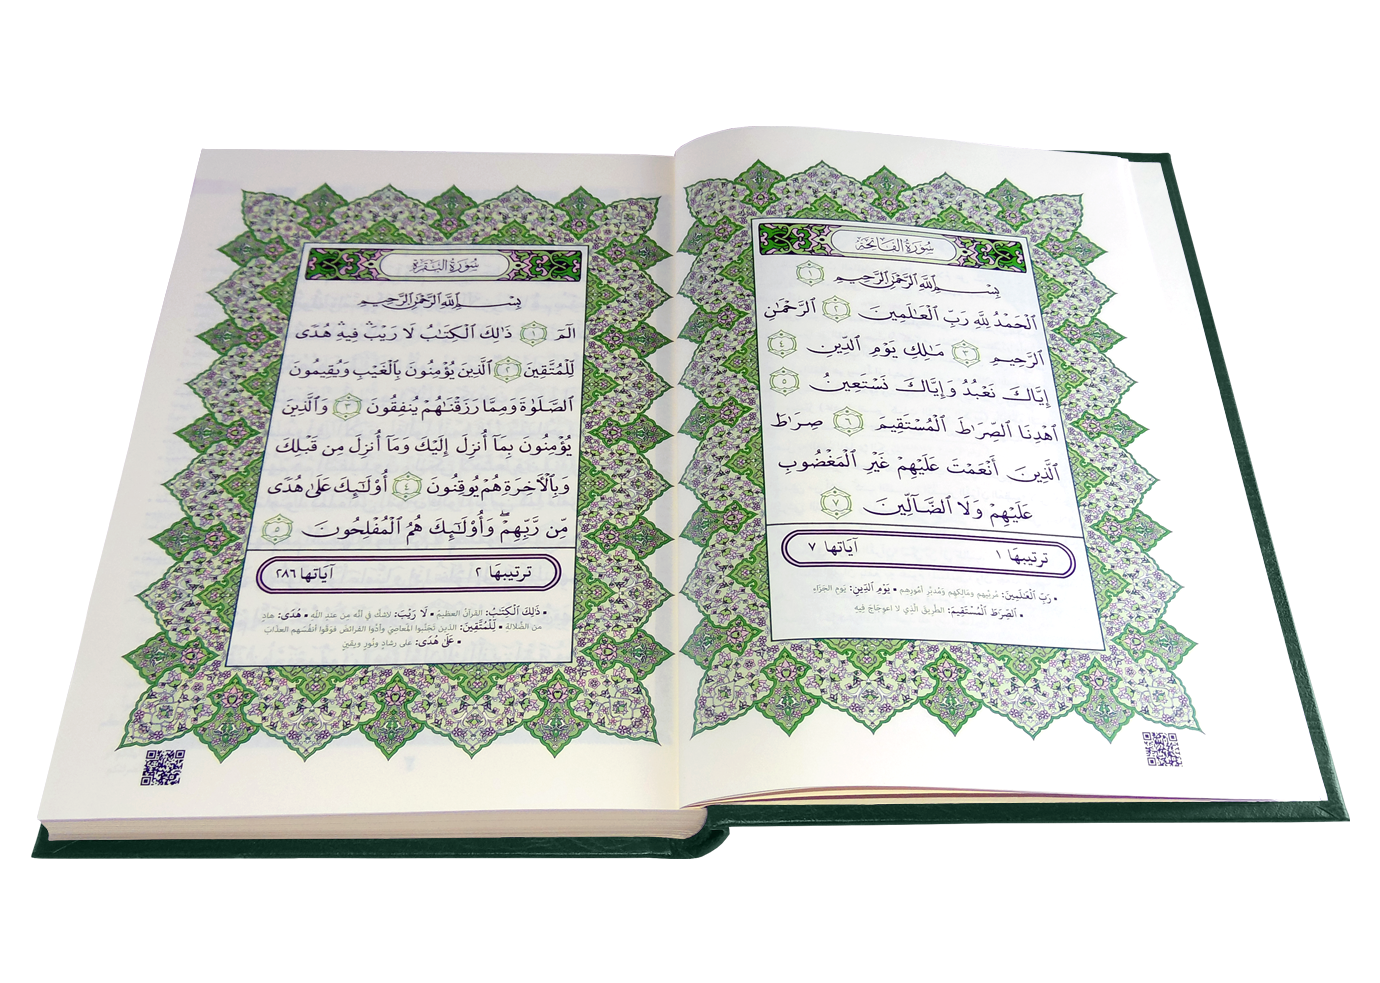 سُورَةُ الفَاتِحَةِ
بِسْمِ ٱللَّهِ ٱلرَّحْمَٰنِ ٱلرَّحِيمِ ١
ٱلْحَمْدُ لِلَّهِ رَبِّ ٱلْعَٰلَمِينَ ٢ ٱلرَّحْمَٰنِ
ٱلرَّحِيمِ ٣ مَٰلِكِ يَوْمِ ٱلدِّينِ ٤
إِيَّاكَ نَعْبُدُ وَإِيَّاكَ نَسْتَعِينُ ٥
ٱهْدِنَا ٱلصِّرَٰطَ ٱلْمُسْتَقِيمَ ٦ صِرَٰطَ
ٱلَّذِينَ أَنْعَمْتَ عَلَيْهِمْ غَيْرِ ٱلْمَغْضُوبِ
عَلَيْهِمْ وَلَا ٱلضَّآلِّينَ ٧
ترتيبهَا ١ آيَاتها ٧
• رَبِّ ٱلْعَٰلَمِينَ: مُربِّيهم ومَالِكِهم ومُدبِّر أمُورِهِم • يَوْمِ ٱلدِّينِ: يَوم الجَزَاءِ
• ٱلصِّرَٰطَ ٱلْمُسْتَقِيمَ: الطَّرِيق الَّذِي لا اعوِجَاجَ فِيهِ
سُورَةُ البَقَرَةِ
بِسْمِ ٱللَّهِ ٱلرَّحْمَٰنِ ٱلرَّحِيمِ
الٓمٓ ١ ذَٰلِكَ ٱلْكِتَٰبُ لَا رَيْبَۛ فِيهِۛ هُدًى
لِّلْمُتَّقِينَ ٢ ٱلَّذِينَ يُؤْمِنُونَ بِٱلْغَيْبِ وَيُقِيمُونَ
ٱلصَّلَوٰةَ وَمِمَّا رَزَقْنَٰهُمْ يُنفِقُونَ ٣ وَٱلَّذِينَ
يُؤْمِنُونَ بِمَآ أُنزِلَ إِلَيْكَ وَمَآ أُنزِلَ مِن قَبْلِكَ
وَبِٱلْأٓخِرَةِ هُمْ يُوقِنُونَ ٤ أُوْلَٰٓئِكَ عَلَىٰ هُدًى
مِّن رَّبِّهِمْۖ وَأُوْلَٰٓئِكَ هُمُ ٱلْمُفْلِحُونَ ٥
ترتيبهَا ٢ آيَاتها ٢٨٦
• ذَٰلِكَ ٱلْكِتَٰبُ: القرآنُ العظيمُ • لَا رَيْبَ: لاشَكَّ في أنَّه من عندِ اللهِ • هُدًى: هادٍ
من الضَّلالةِ • لِّلْمُتَّقِينَ: الذين تَجَنَّبوا المَعاصِيَ وأدَّوا الفَرائضَ فوَقَوْا أنفُسَهم العَذابَ
• عَلَىٰ هُدًى: على رشادٍ ونُورٍ ويقينٍ